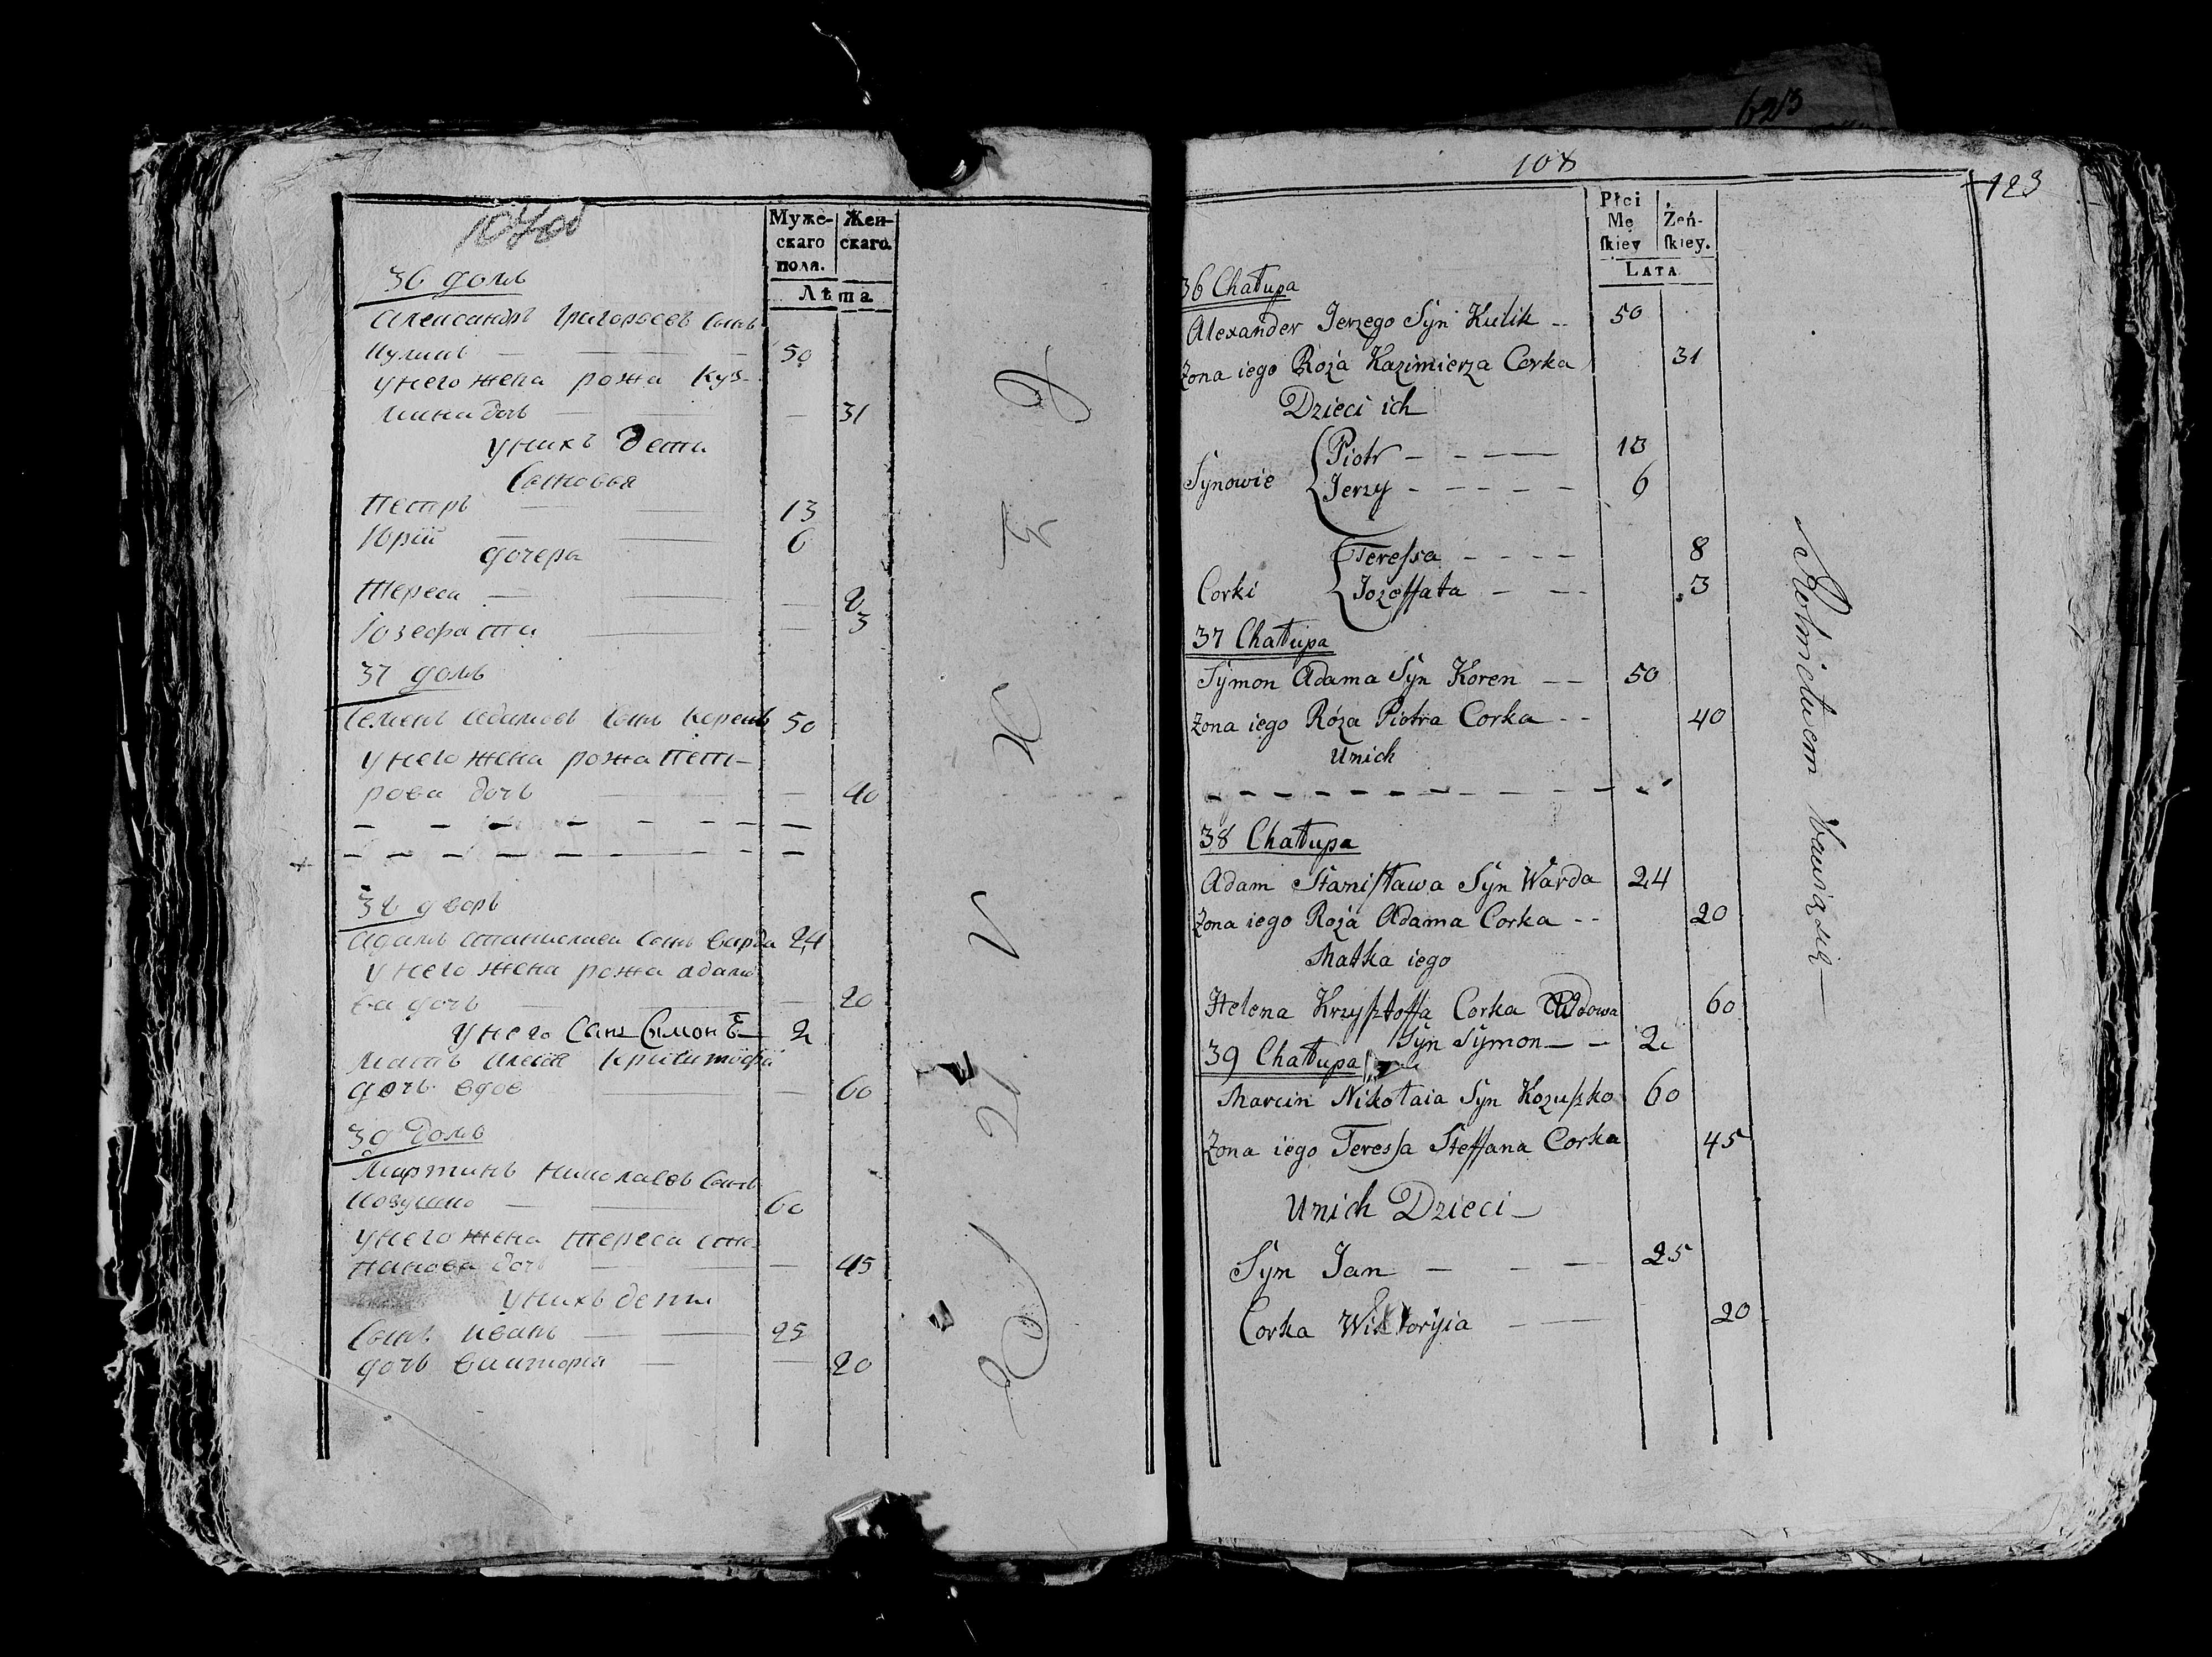 Муже-
скаго
пола.
Жен-
скаго.
Лѣта
36 домъ
Александръ Григорьевъ Сынъ
Куликъ — — — 50
У него жена рожа Куз-
мина дочь — — 31
У нихъ дети
Сыновья
Петръ — — 13
Юрїй — — 6
дочера
Тереса — — 8
Iозефата — — 3
37 домъ
Семенъ Адамовъ Сынъ Коренъ 50
У него жена рожа пет-
рова дочь — — 40
38 дворъ
Адамъ Станиславъ Сынъ Варда 24
У него жена рожа адамо
ва дочь — — 20
У него Сынъ Сымонъ — 2
Мать
дочь вдов — — 60
39 домъ
Мартинъ Николаевъ Сынъ
Козушко — — 60
У него жена тереса сте-
панова дочь — — 45
У нихъ дети
Сынъ Иванъ — — 25
дочь Виктория — — 20
108
123
623
Płci
Mę
ſkiey
Żeń-
ſkiey.
LATA
36 Chałupa
Alexander Jerzego Syn Kulik -- 50
Żona iego Roża Kazimierza Corka 31
Dzieci ich
Synowie
Piotr - - - — 13
Jerzy - - - - - 6
Corki
Tereſsa - - - - 8
Jozeffata - - - 3
37 Chałupa
Symon Adama Syn Koren — - 50
Żona iego Róża Piotra Corka - - 40
Unich
- - - - - - - - - - - -
38 Chałupa
Adam Staniſława Syn Warda 24
Żona iego Roża Adama Corka - - 20
Matka iego
Helena Krzyſztoffa Corka Wdowa 60
Syn Symon — - 2
39 Chałupa
Marcin Nikołaia Syn Kozuſzko 60
Żona iego Teresſa Steffana Corka 45
Unich Dzieci —
Syn Jan - - — 25
Corka Wiktoryia - — 20
Rolnictwem bawią się —